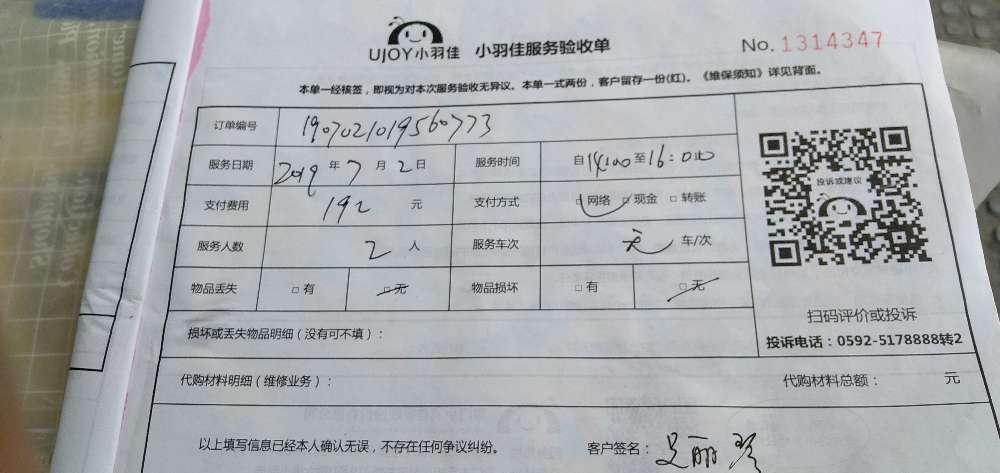 UJOY小羽佳 小羽佳服务验收单 No. 1314347
本单一经核签，即视为对本次服务验收无异议。本单一式两份，客户留存一份(红)。《维保须知》详见背面。
订单编号 190702101956077 3
服务日期 2019 年 7 月 2 日 服务时间 自14:00至16:00
支付费用 192 元 支付方式 网络 □ 现金 □ 转账
服务人数 2 人 服务车次 无 车/次
物品丢失 □ 有 □ 无 物品损坏 □ 有 □ 无
投诉或建议
扫码评价或投诉
投诉电话：0592-5178888转2
损坏或丢失物品明细（没有可不填）：
代购材料明细（维修业务）： 代购材料总额： 元
以上填写信息已经本人确认无误，不存在任何争议纠纷。 客户签名：吴丽琴